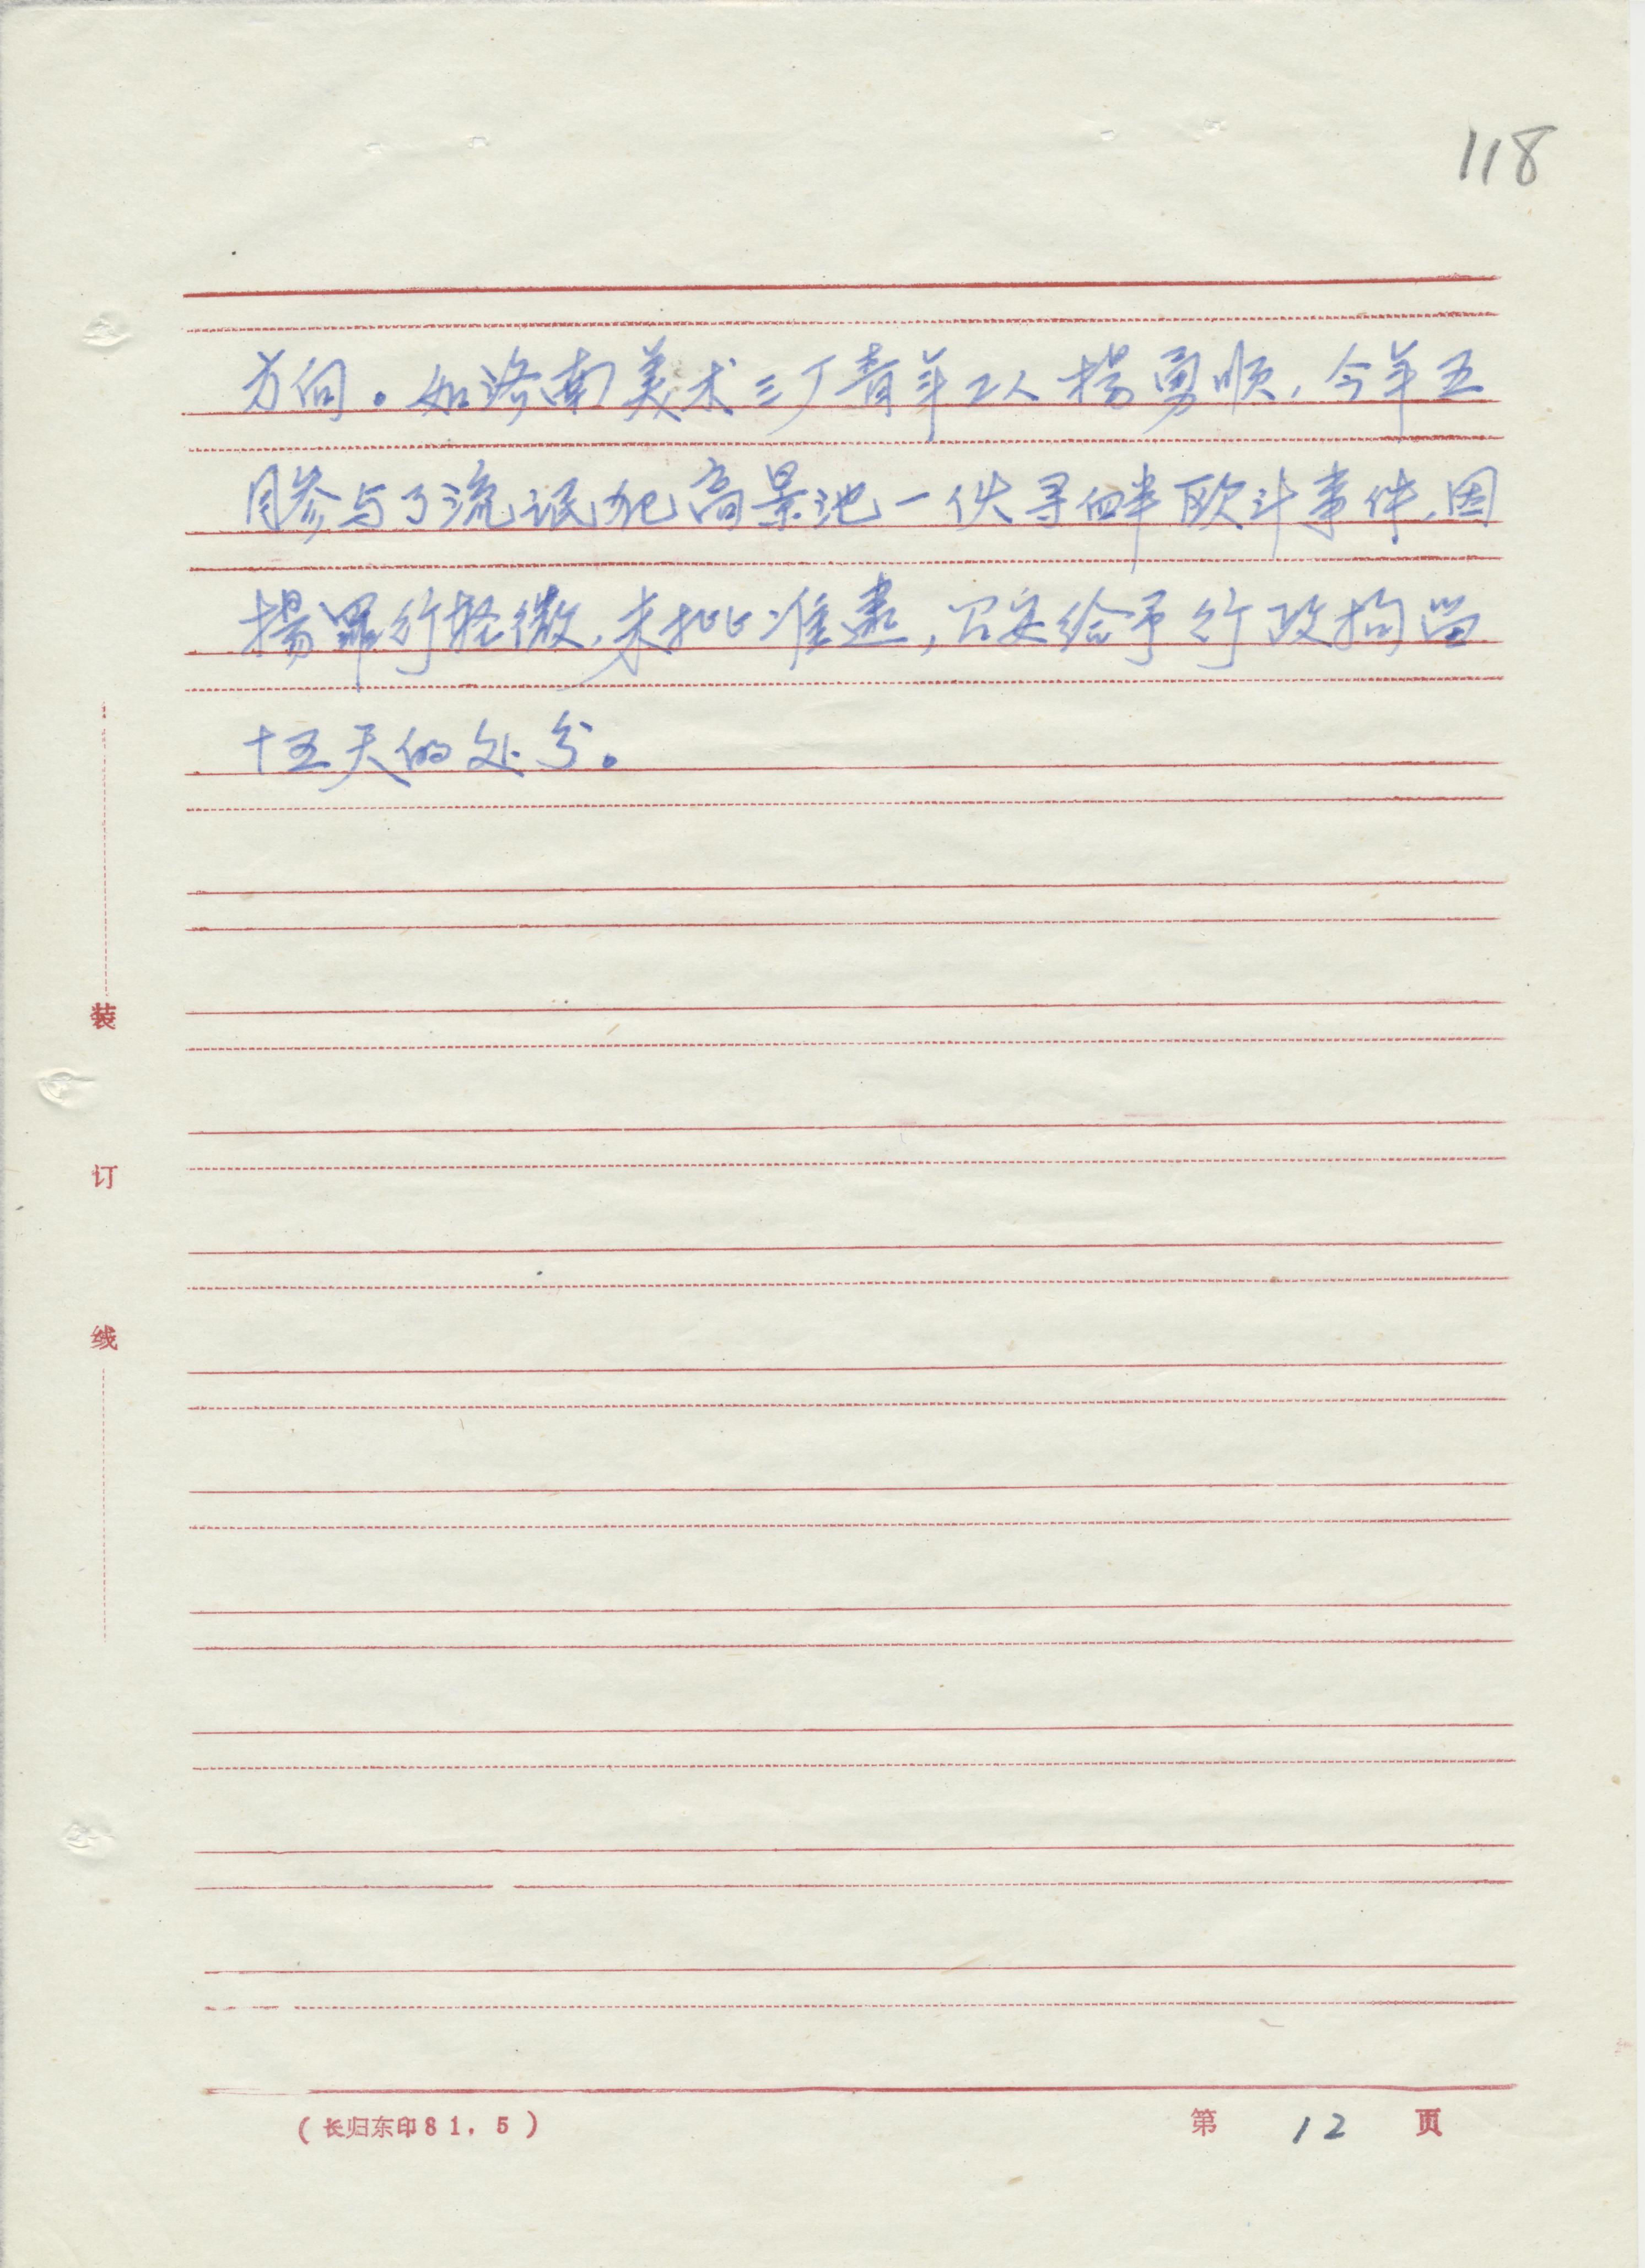 118
方向。如洛南美术三厂青年工人杨勇顺，今年五
月参与了流氓犯高景池一伙寻衅欧斗事件，因
杨罪行轻微，未批准逮，公安给予行政拘留
十五天的处分。
装
订
线
(长归东印81.5)
第 12 页